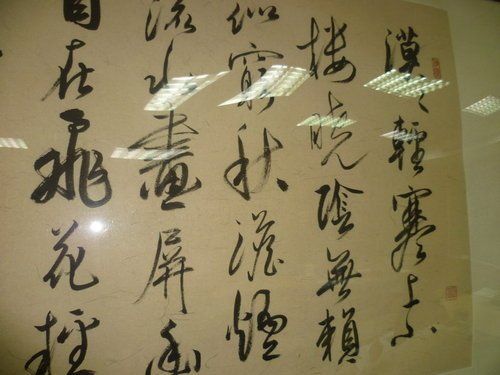 漠々輕寒上小
樓曉陰無賴
似窮秋澹煙
流水畫屏幽
自在飛花輕